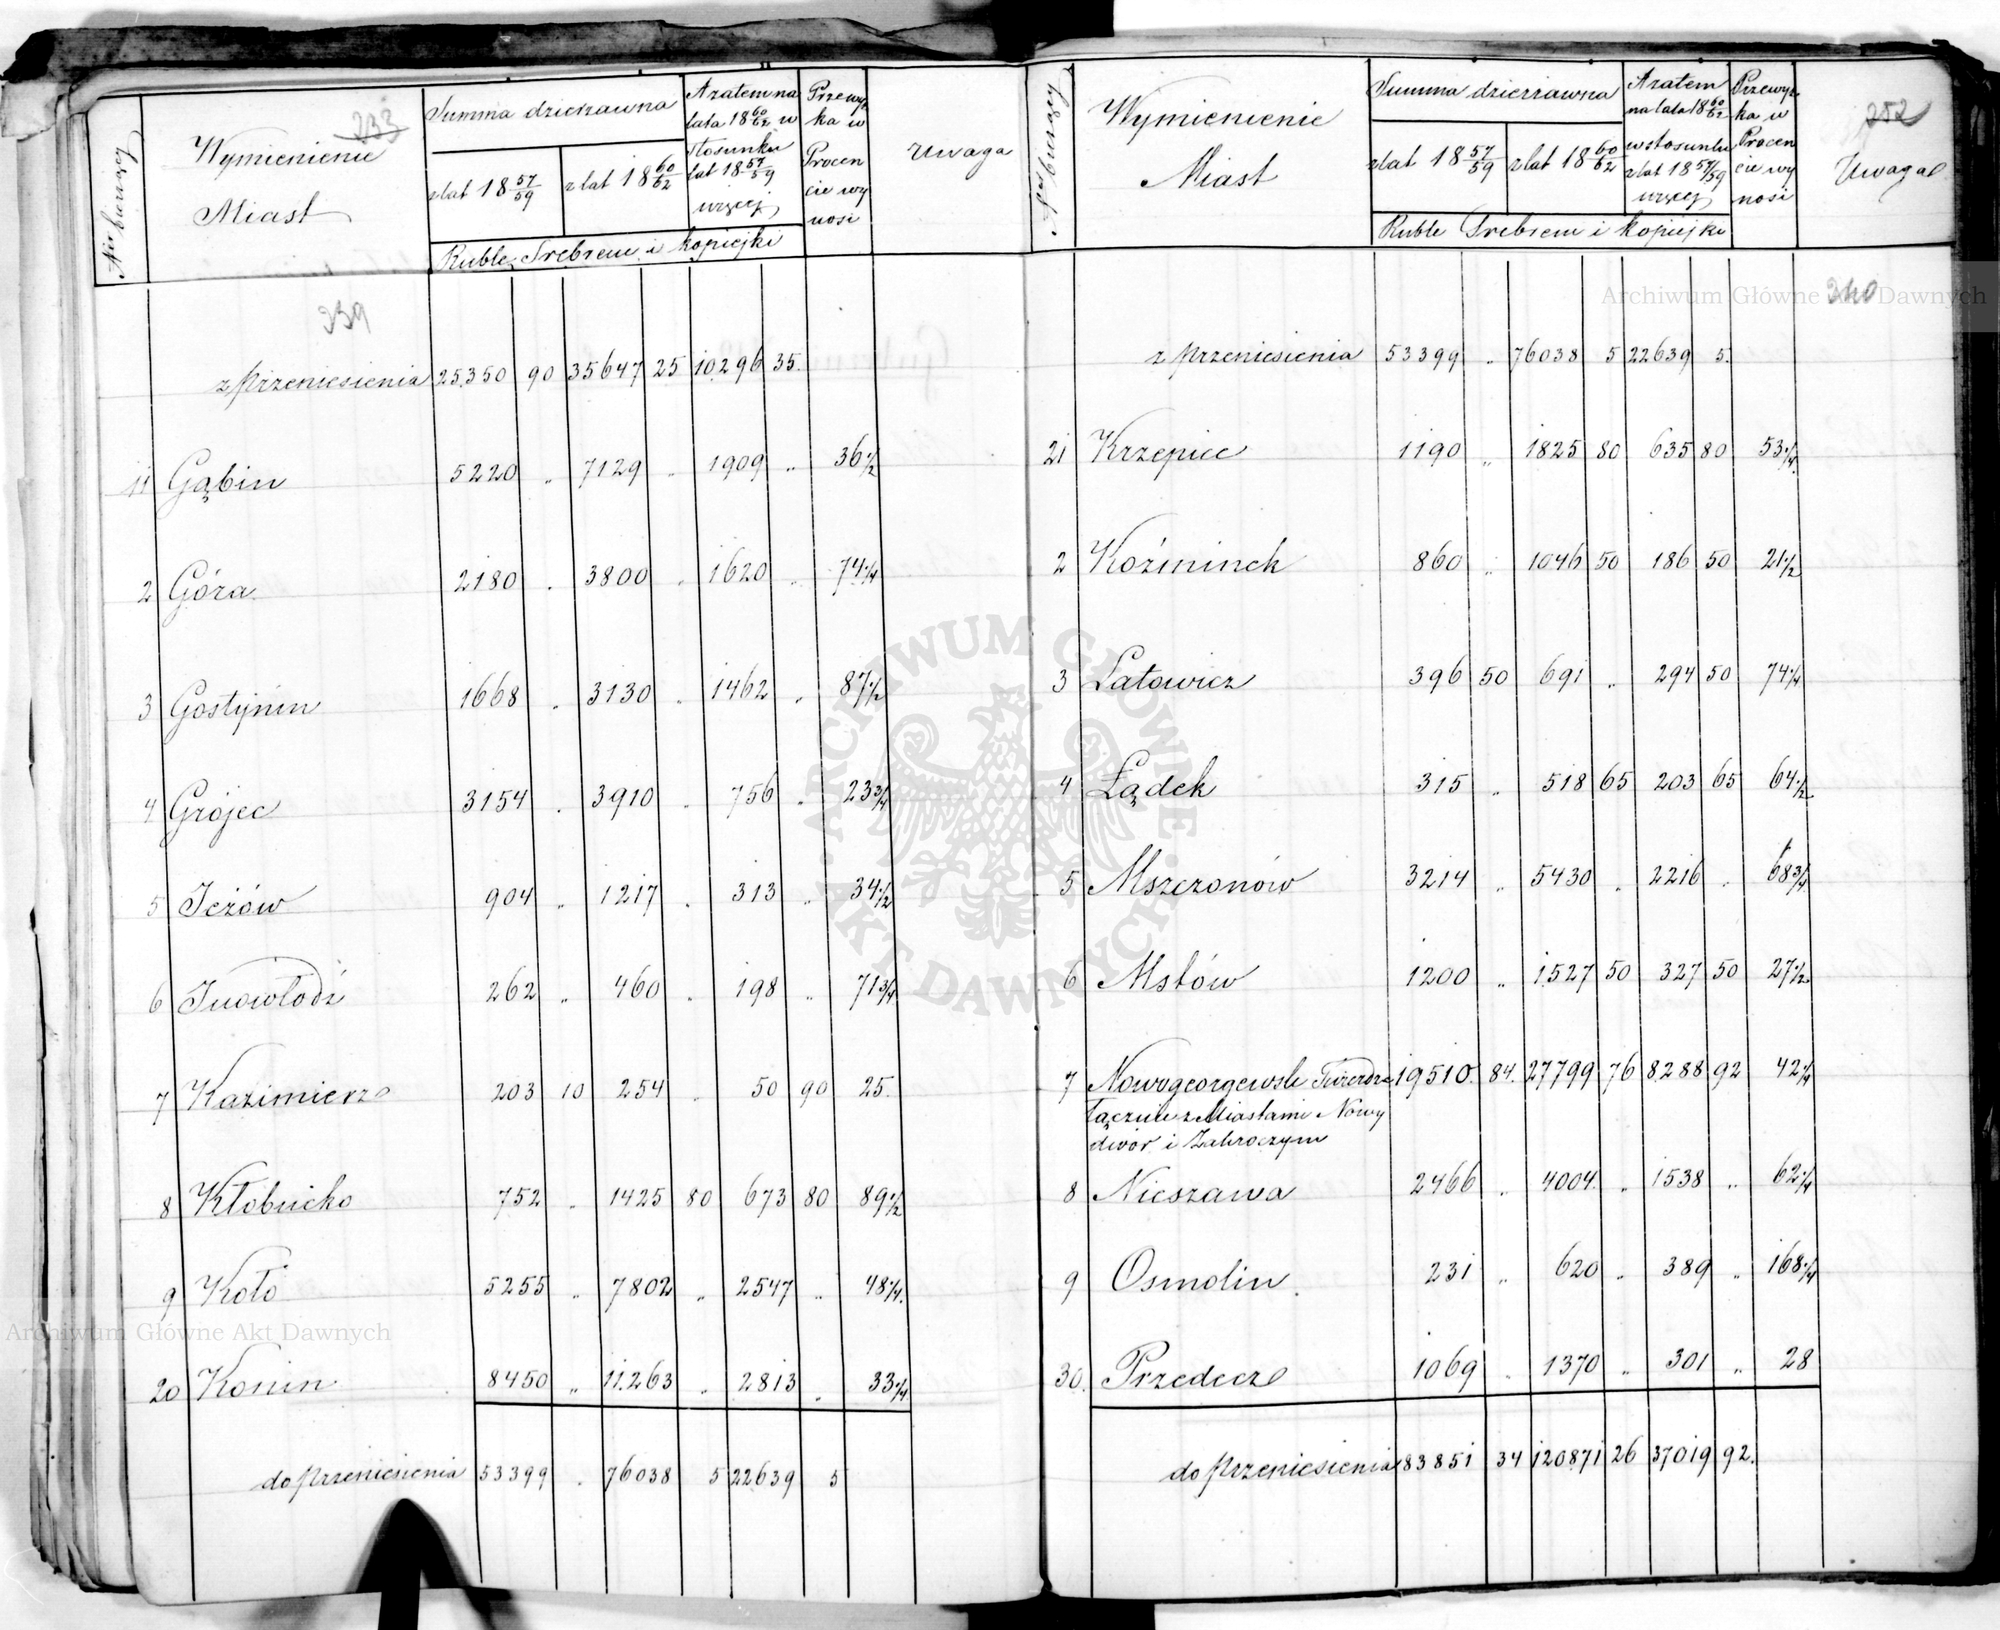 233
Nr bieżący
Wymienienie
Miast
Summa dzierzawna
z lat 18 57/59
z lat 18 60/62
A zatem na
lata 18 60/62 w
stosunku
lat 18 57/59
więcej
Przewyż
ka w
Procen
cie wy
nosi
Uwaga
Ruble Srebrem i kopiejki
239
z przeniesienia 25,350 90 35647 25 10296 35.
11 Gąbin 5220 „ 7129 „ 1909 „ 36 1/2
2 Góra 2180 . 3800 „ 1620 „ 74 1/4
3 Gostynin 1668 . 3130 „ 1462 „ 87 1/2
4 Grójec 3154 . 3910 „ 756 „ 23 3/4
5 Jeżów 904 „ 1217 „ 313 „ 34 1/2
6 Inowłodź 262 „ 460 „ 198 „ 71 3/4
7 Kazimierz 203 10 254 „ 50 90 25.
8 Kłobucko 752 „ 1425 80 673 80 89 1/2
9 Koło 5255 „ 7802 „ 2547 „ 48 1/4.
20 Konin 8450 „ 11.263 „ 2813 „ 33 1/4
do przeniesienia 53399 . 76038 5 22639 5
Nr bieżący
Wymienienie
Miast
Summa dzierzawna
z lat 18 57/59
z lat 18 60/62
A zatem
na lata 18 60/62
w stosunku
z lat 18 57/59
więcej
Przewyż
ka w
Procen
cie wy
nosi
252
Uwaga
Ruble Srebrem i kopiejki
240
z przeniesienia 53399 „ 76038 5 22639 5.
21 Krzepice 1190 „ 1825 80 635 80 53 1/4.
2 Koźminek 860 „ 1046 50 186 50 21 1/2
3 Latowicz 396 50 691 „ 294 50 74 1/4
4 Łądek 315 „ 518 65 203 65 64 1/2.
5 Mszczonów 3214 „ 5430 „ 2216 „ 68 3/4.
6 Mstów 1200 „ 1527 50 327 50 27 1/2.
7 Nowogeorgewsk Twierdza 19510. 84. 27799 76 8288 92 42 1/4
łącznie z Miastami Nowy
dwór i Zakroczym
8 Nieszawa 2466 „ 4004. „ 1538 „ 62 1/4
9 Osmolin. 231 „ 620 „ 389 „ 168 1/4
30. Przedecz 1069 „ 1370 „ 301 „ 28
do przeniesienia 83851 34 120871 26 37019 92.
Archiwum Główne Akt Dawnych
Archiwum Główne Akt Dawnych
ARCHIWUM GŁÓWNE AKT DAWNYCH